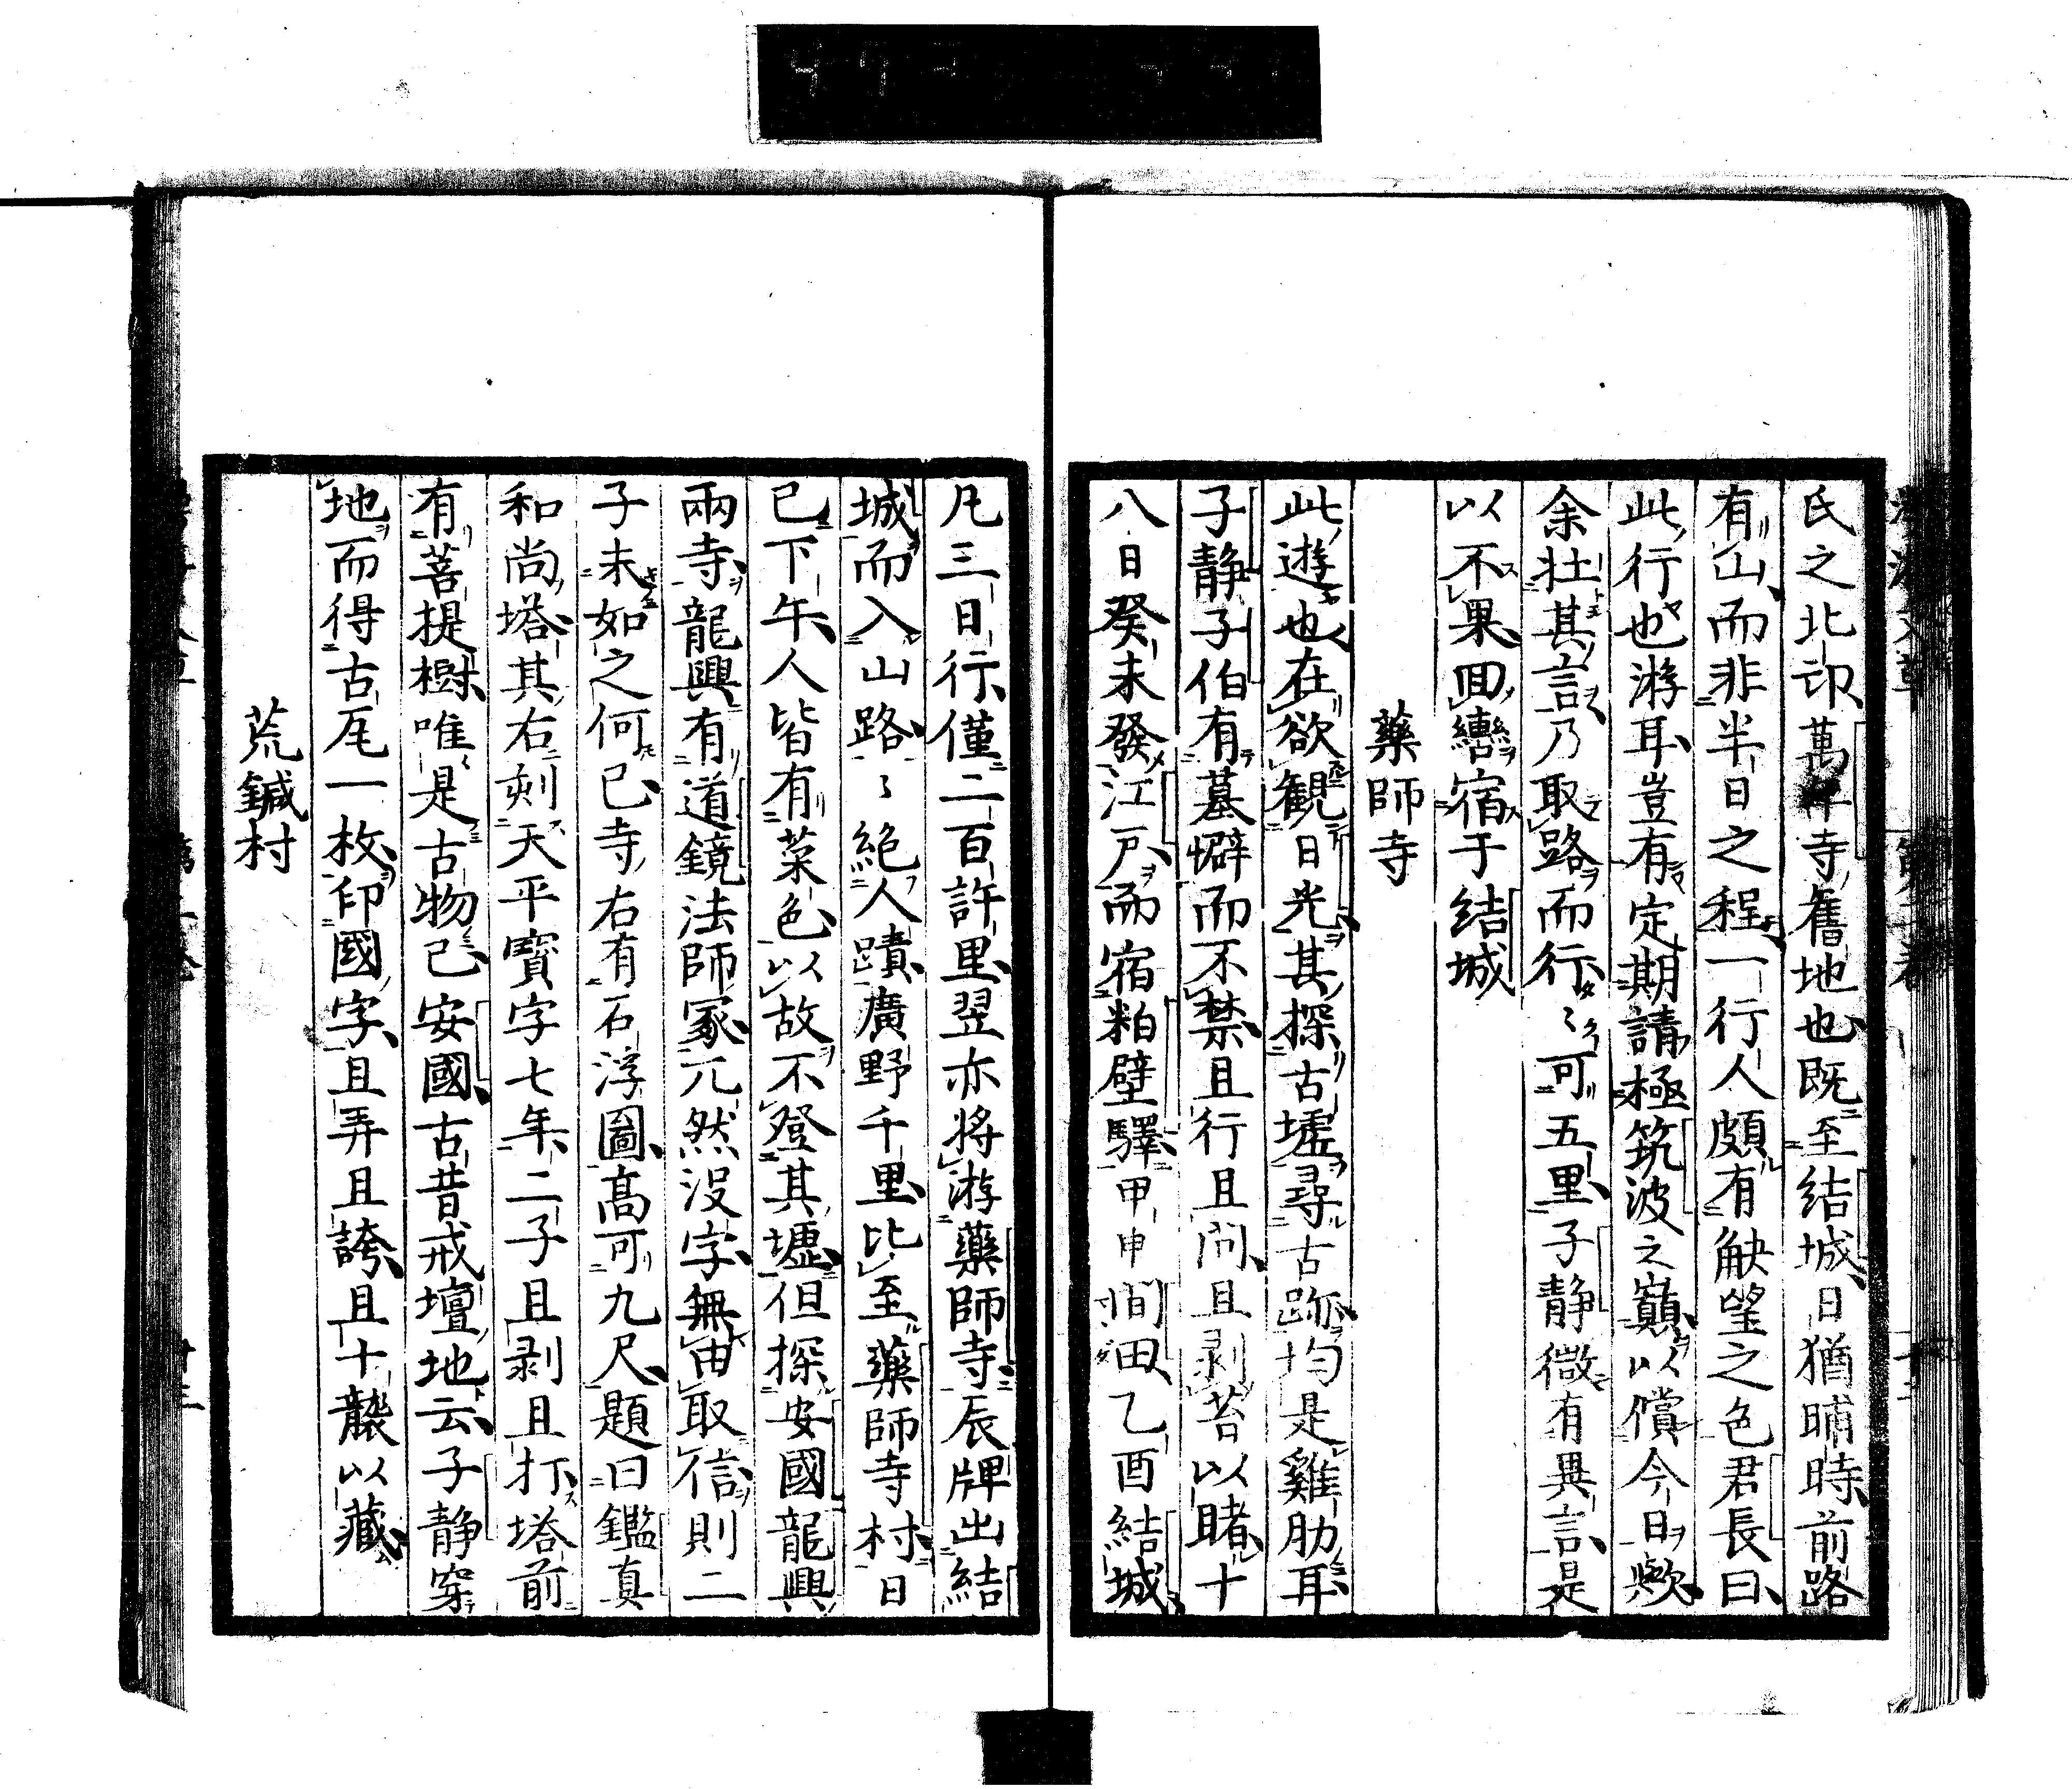 氏之北印萬年寺舊地也既至結城日猶晡時前路
有山而非半日之程一行人頗有觖望之色君長曰
此行也游耳豈有定期請極筑波之巓以償今日歟
余壮其言乃取路而行〻可五里子静微有異言是
以不果回轡宿于結城
藥師寺
此遊也在欲観日光其探古墟尋古跡均是雞肋耳
子静子伯有墓癖而不禁且行且问且剥苔以睹十
八日癸未發江戸而宿粕壁驛甲申間田乙酉結城
凡三日行僅二百許里翌亦将游藥師寺辰牌出結
城而入山路〻絶人蹟廣野千里比至藥師寺村日
已下午人皆有菜色以故不登其墟但探安國龍興
兩寺龍興有道鏡法師冢兀然没字無由取信則二
子未如之何已寺右有石浮圖高可九尺題曰鑑真
和尚塔其右刻天平寳字七年二子且剥且打塔前
有菩提樹唯是古物已安國古昔戒壇地云子静穿
地而得古瓦一枚印國字且弄且誇且十襲以藏
荒鍼村